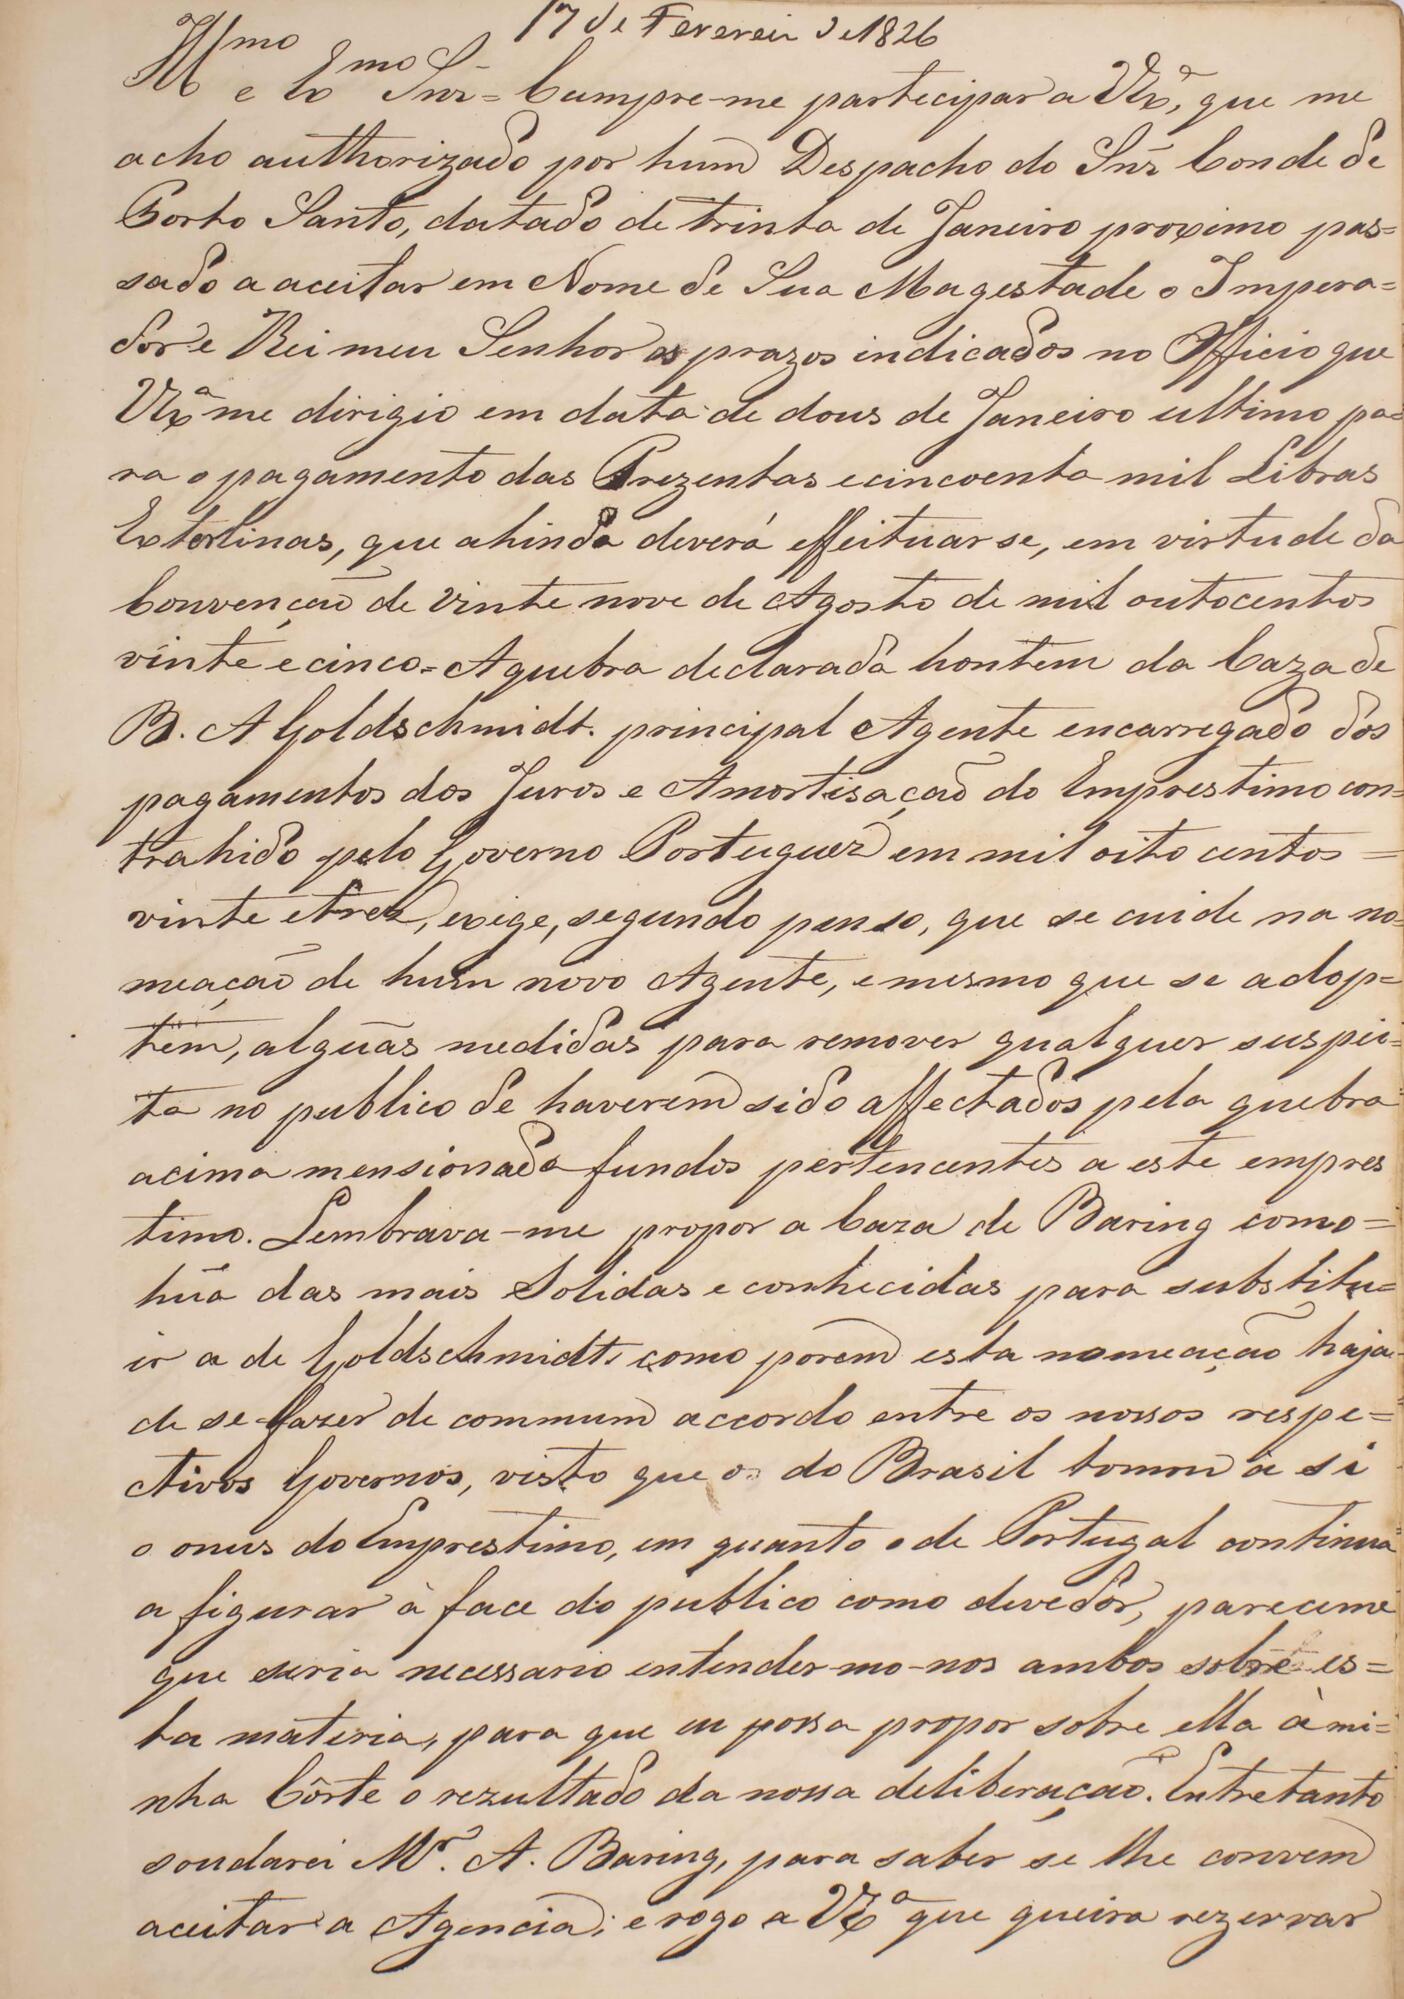 17 de Fevereiro de 1826
Illmo e Exmo Snr = Cumpre-me partecipar a VExª, que me
acho authorizado por hum Despacho do Snr Conde de
Porto Santo, datado de trinta de Janeiro proximo pas=
sado a aceitar em Nome de Sua Magestade o Impera=
dor e Rei meu Senhor os prazos indicados no Officio que
VExª me dirigio em data de dous de Janeiro ultimo pa=
ra o pagamento das Trezentas e cincoenta mil Libras
Exterlinas, que ahinda deverá effeituar se, em virtude da
Convenção de vinte nove de Agosto de mil outocentos
vinte e cinco = A quebra declarada hontem da Caza de
B. A Goldschmidt. principal Agente encarregado dos
pagamentos dos Juros e Amortisação do Emprestimo con=
trahido pelo Governo Portuguez em mil oito centos =
vinte e tres, exige, segundo penso, que se cuide na no=
meação de hum novo Agente, e mesmo que se adop=
tem, alguãs medidas para remover qualquer suspei=
ta no publico de haverem sido affectados pela quebra
acima mensionada fundos pertencentes a este empres
timo. Lembrava-me propor a Caza de Baring como =
huã das mais Solidas e conhecidas para substitu=
ir a de Goldschmidt, como porem esta nomeação haja
de se fazer de commum accordo entre os nossos respe=
ctivos Governos, visto que o do Brasil tomou à si
o onus do Emprestimo, em quanto o de Portugal continua
a figurar à face do publico como devedor, pareceme
que seria necessario entender-mo-nos ambos sobre es=
ta materia, para que eu possa propor sobre ella à mi=
nha Côrte o rezultado da nossa deliberação. Entretanto
sondarei Mr. A. Baring, para saber se lhe convem
aceitar a Agencia; e rogo a VExª que queira rezervar